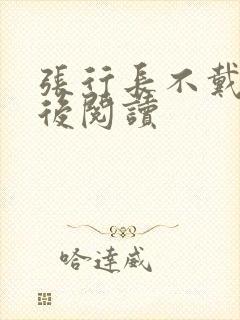 張行長不戴
後閱讀
哈達威